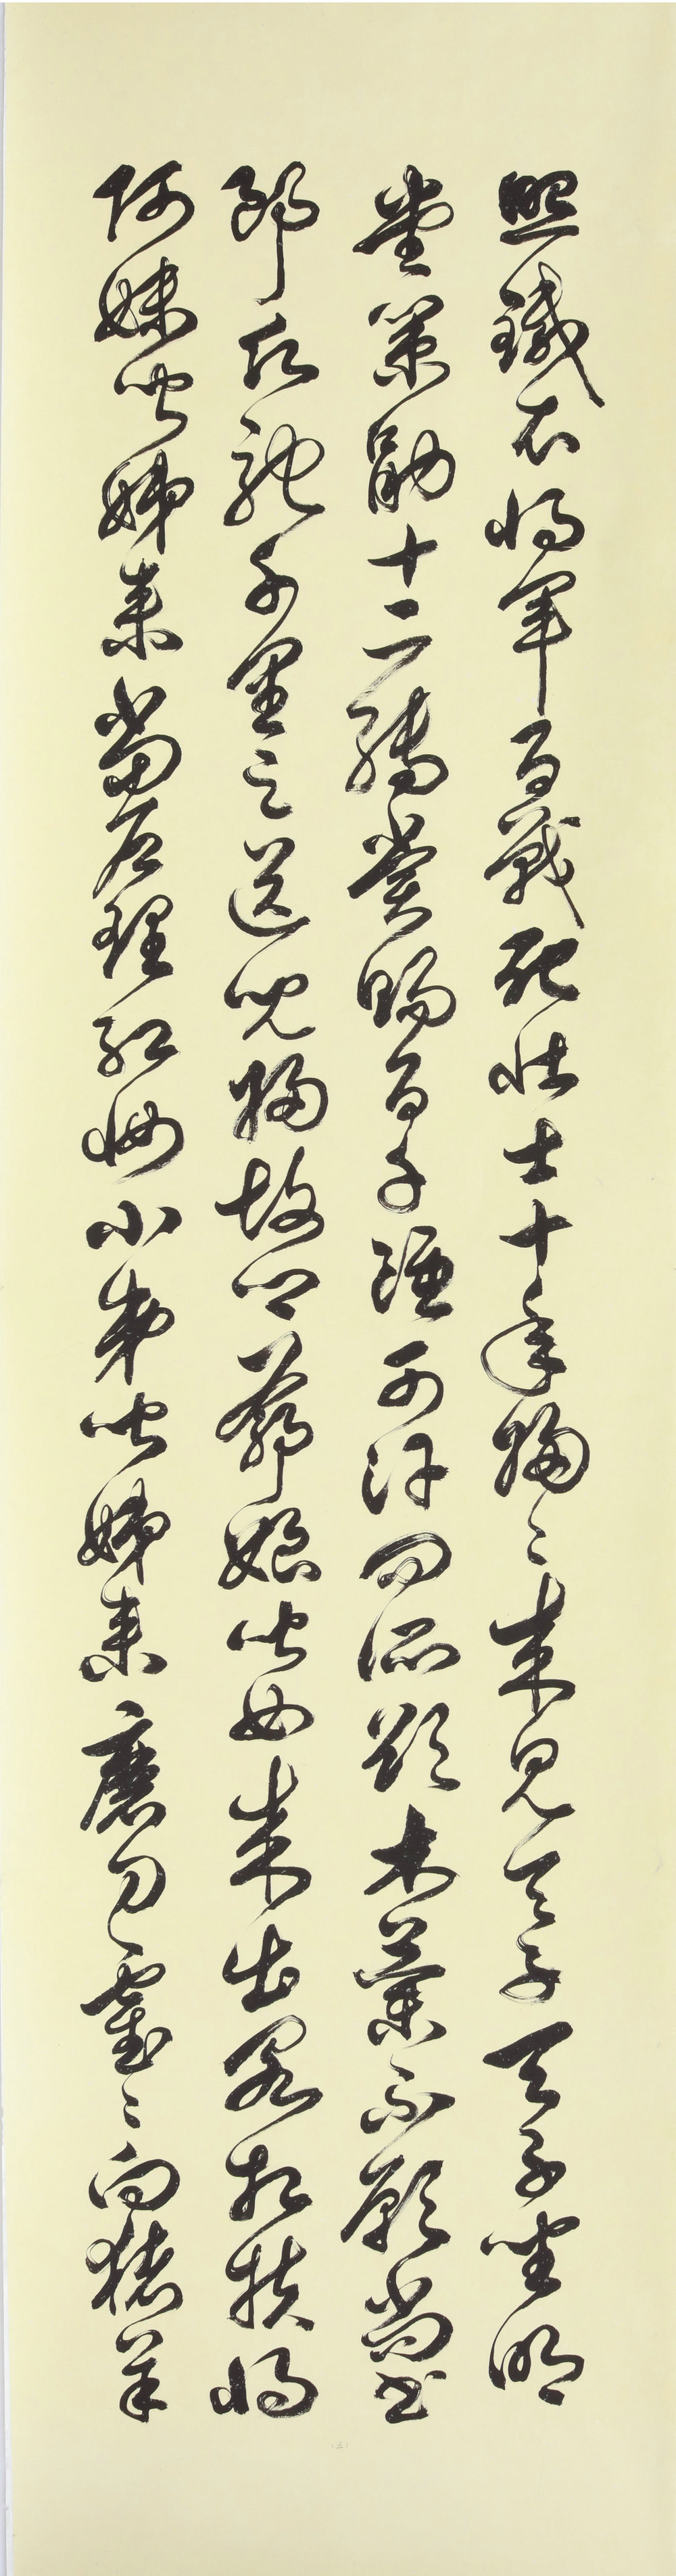 照鐵衣將軍百戰死壯士十年歸〻來見天子天子坐明
堂策勛十二轉賞賜百千強可汗問所欲木蘭不願尚書
郎願馳千里足送兒歸故鄉爺娘聞女來出郭相扶將
阿妹聞姊來當戶理紅妝小弟聞姊來磨刀霍〻向猪羊